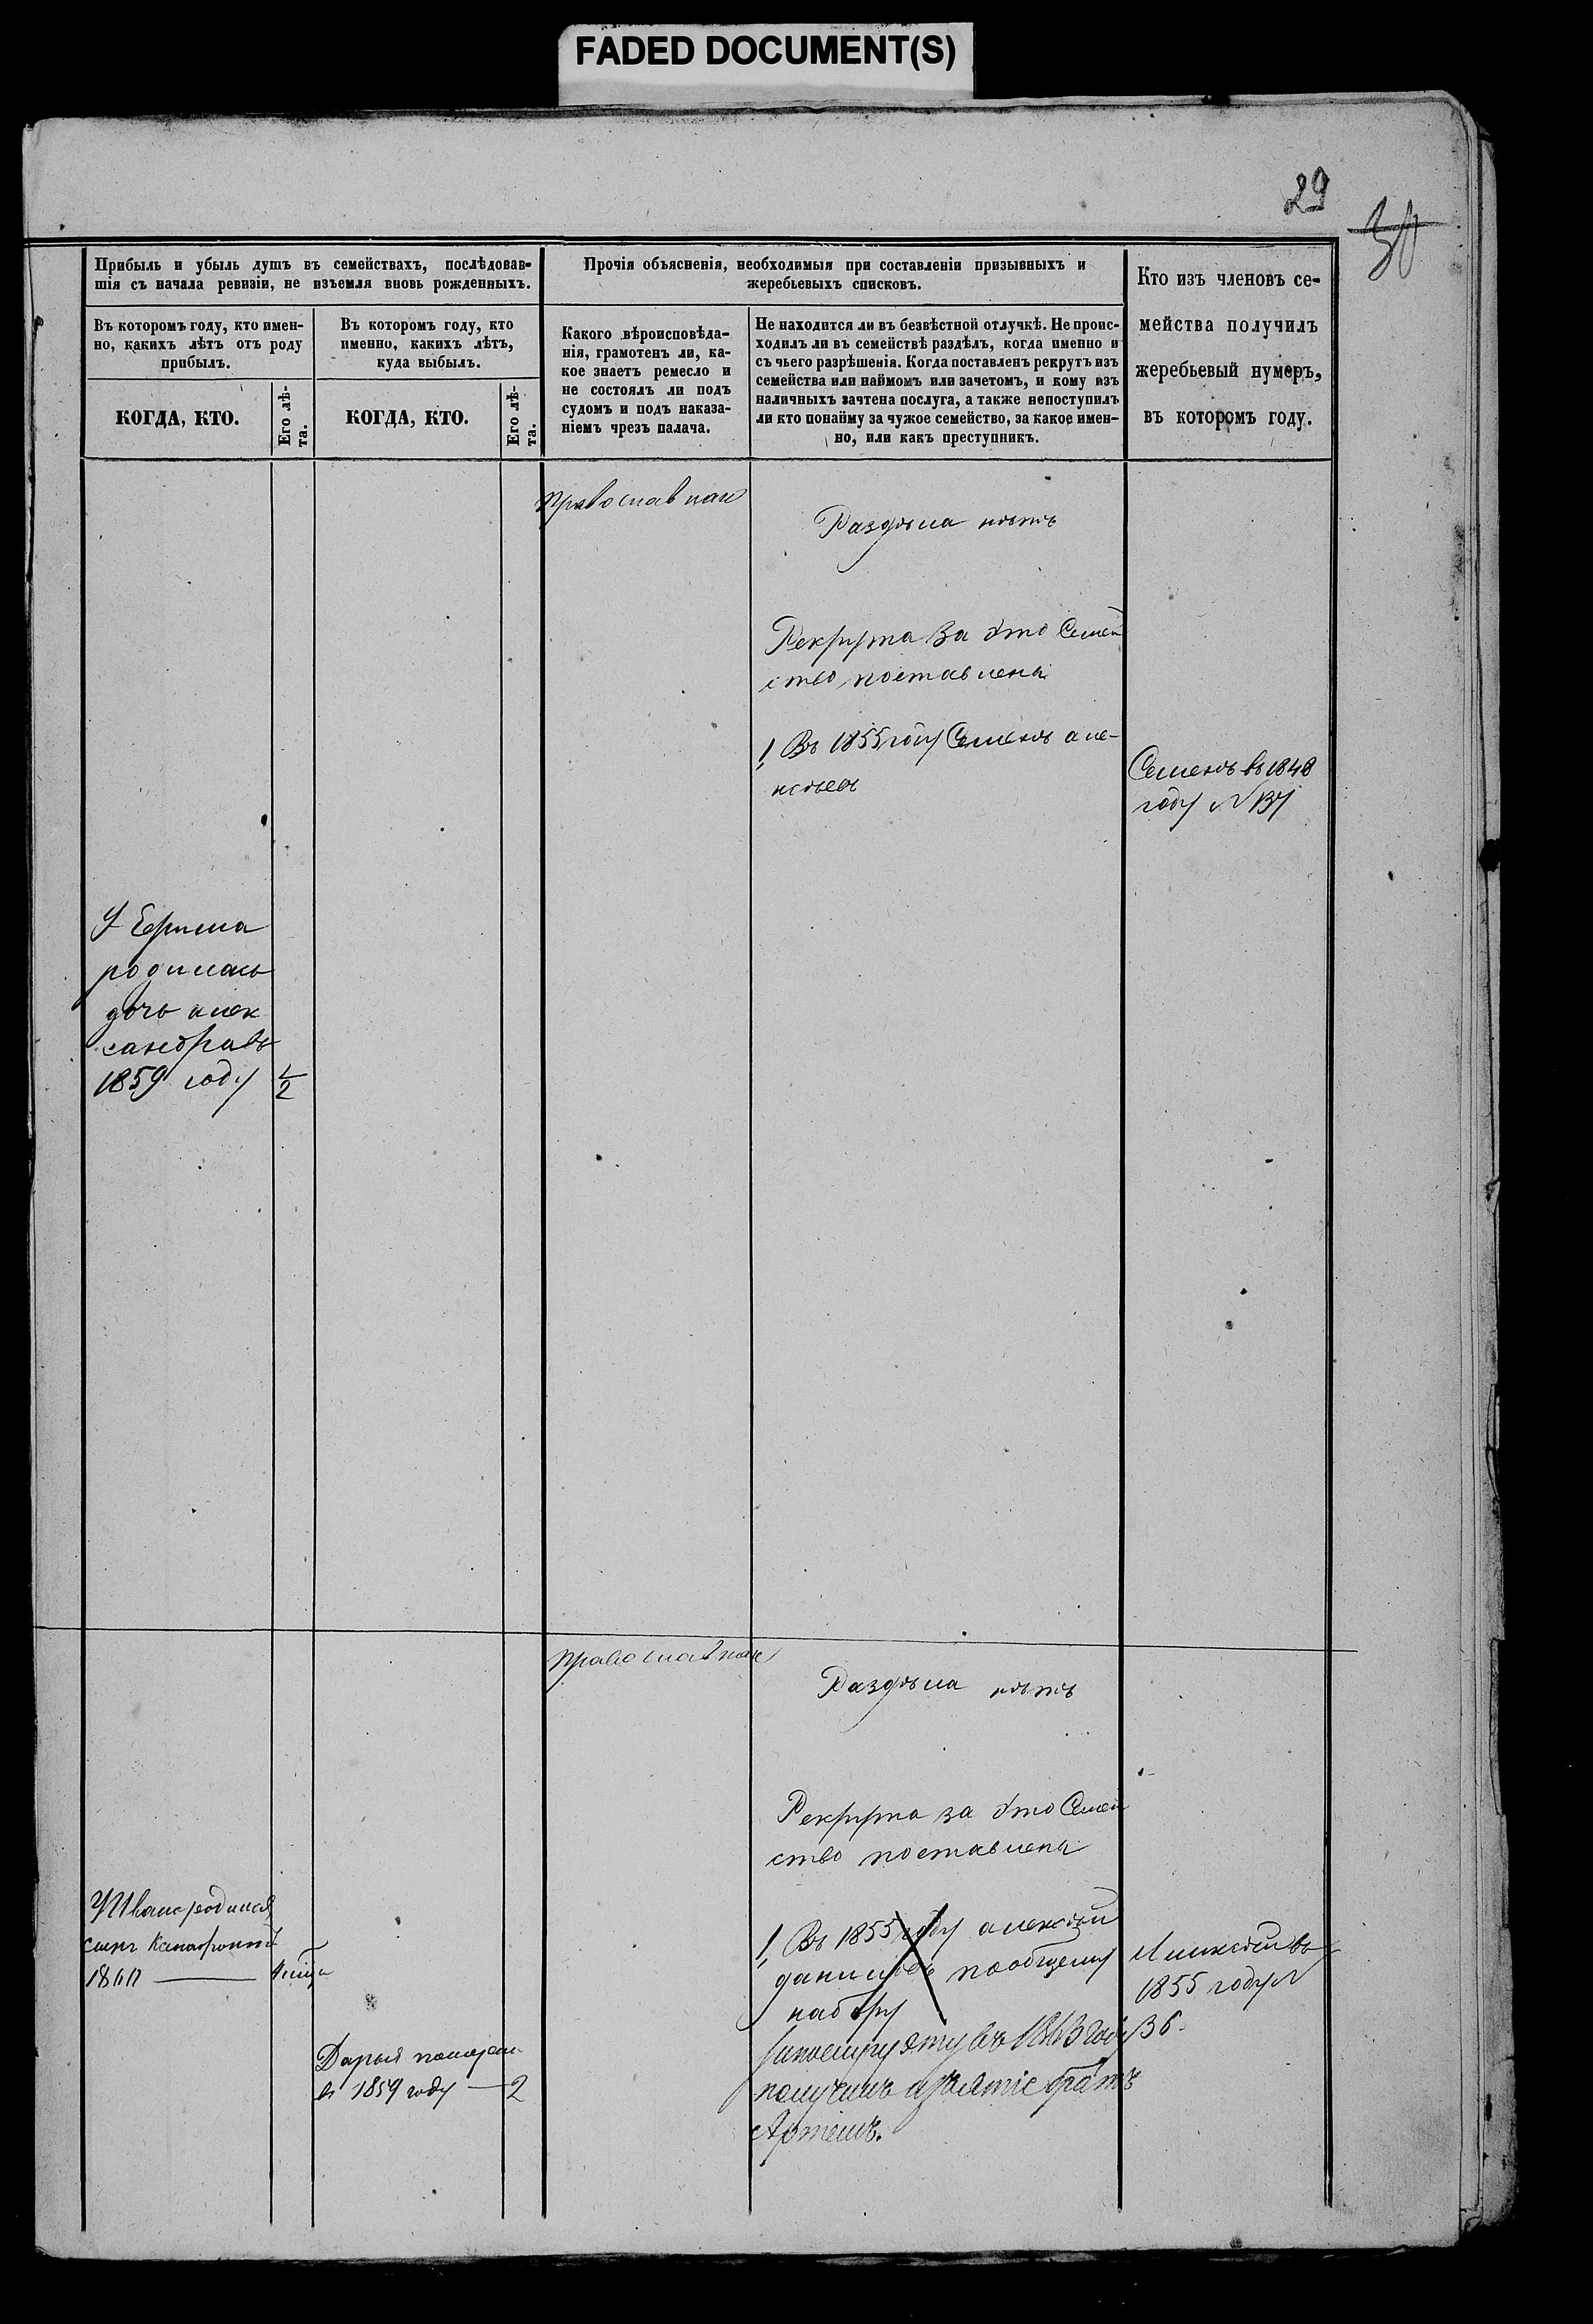 FADED DOCUMENT(S)
29
30
Прибыль и убыль душъ въ семействахъ, послѣдовав-
шія съ начала ревизіи, не изъемля вновь рожденныхъ.
Въ которомъ году, кто имен-
но, какихъ лѣтъ отъ роду
прибылъ.
Въ которомъ году, кто
именно, какихъ лѣтъ,
куда выбылъ.
КОГДА, КТО.
Его лѣ-
та.
КОГДА, КТО.
Его лѣ-
та.
Прочія объясненія, необходимыя при составленіи призывныхъ и
жеребьевыхъ списковъ.
Какого вѣроисповѣда-
нія, грамотенъ ли, ка-
кое знаетъ ремесло и
не состоялъ ли подъ
судомъ и подъ наказа-
ніемъ чрезъ палача.
Не находится ли въ безвѣстной отлучкѣ. Не проис-
ходилъ ли въ семействѣ раздѣлъ, когда именно и
съ чьего разрѣшенія. Когда поставленъ рекрутъ изъ
семейства или наймомъ или зачетомъ, и кому изъ
наличныхъ зачтена послуга, а также непоступилъ
ли кто понайму за чужое семейство, за какое имен-
но, или какъ преступникъ.
Кто изъ членовъ се-
мейства получилъ
жеребьевый нумеръ,
въ которомъ году.
Раздѣла нѣтъ
Рекрута за это Семей
ство поставлены
1, Въ 1855 году Семенъ але-
ксѣевъ
Семенъ въ 1848
году N
У
родилась
дочь алек
сандравъ
1859 году 1/2
Раздѣла нѣтъ
Рекрута за это Семей
ство поставлены
У Ивана родился
сынъ
1860
1, Въ 1855 году алексѣй
данилъевъ пообщему
набору
въ
1855 году N
36.
Дарья
въ 1859 году — 2
въ 1863 году
получилъ братъ